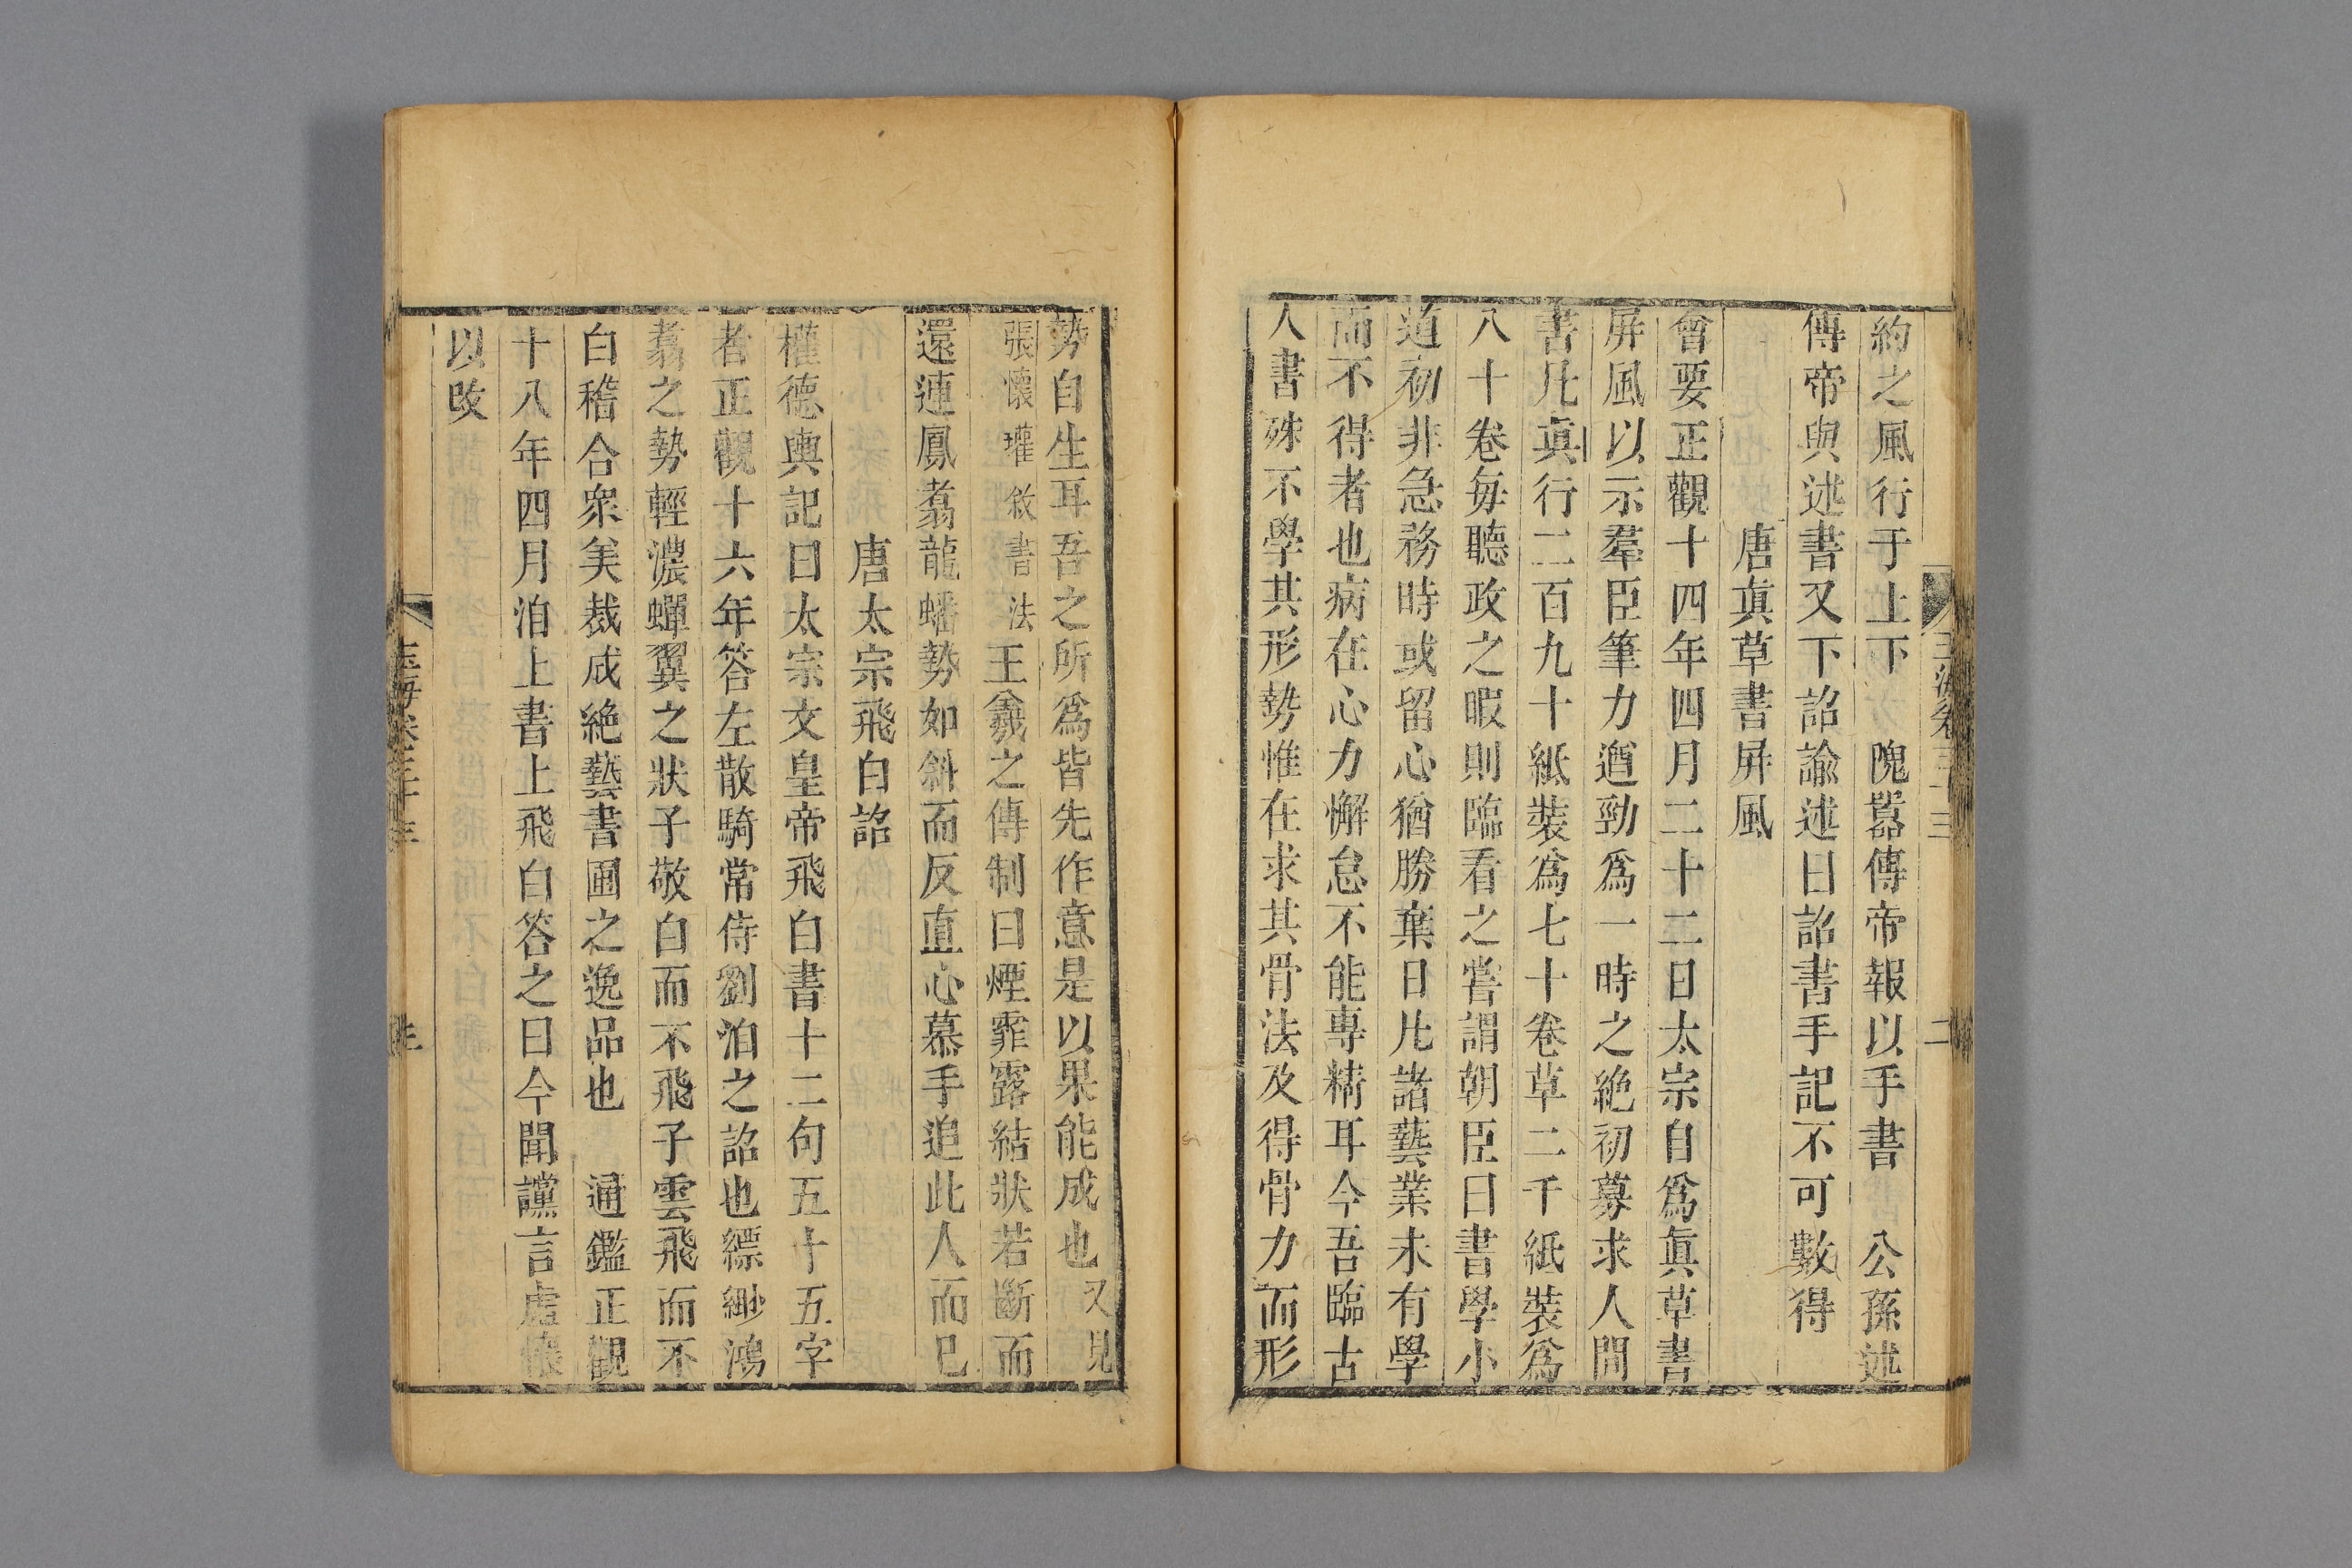 玉海卷三十三 二
約之風行于上下 隗囂傳帝報以手書 公孫述
傳帝與述書又下詔諭述曰詔書手記不可數得
唐眞草書屏風
會要正觀十四年四月二十二日太宗自爲眞草書
屏風以示羣臣筆力遒勁爲一時之絶初募求人間
書凡眞行二百九十紙裝爲七十卷草二千紙裝爲
八十卷每聽政之暇則臨看之嘗謂朝臣曰書學小
道初非急務時或留心猶勝棄日凡諸藝業未有學
而不得者也病在心力懈怠不能專精耳今吾臨古
人書殊不學其形勢惟在求其骨法及得骨力而形
勢自生耳吾之所爲皆先作意是以果能成也又見
張懷瓘敘書法王羲之傳制曰煙霏露結狀若斷而
還連鳳翥龍蟠勢如斜而反直心慕手追此人而已
唐太宗飛白詔
權德輿記曰太宗文皇帝飛白書十二句五十五字
者正觀十六年答左散騎常侍劉洎之詔也縹緲鴻
翥之勢輕濃蟬翼之狀子敬白而不飛子雲飛而不
白稽合衆美裁成絶藝書圃之逸品也 通鑑正觀
十八年四月洎上書上飛白答之曰今聞讜言虛懷
以改
玉海卷三十三